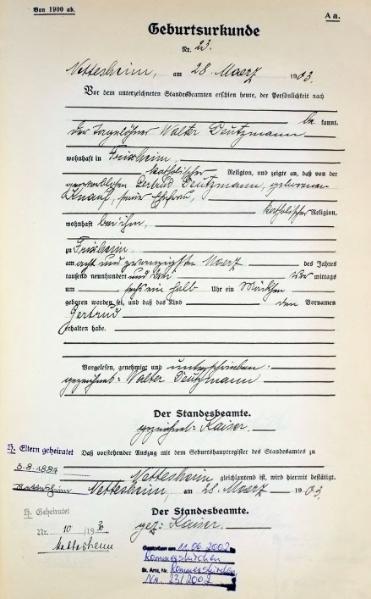 Von 1900 ab.
A a.
Geburtsurkunde
Nr. 23.
Nettesheim, am 28 Maerz 1903.
Vor dem unterzeichneten Standesbeamten erschien heute, der Persönlichkeit nach
be kannt,
der Tagelöhner Walter Deutzmann
wohnhaft in Frixheim,
katholischer Religion, und zeigte an, daß von der
Gertrud Deutzmann, geborenen
seiner Ehefrau,
katholischer Religion,
wohnhaft bei ihm,
zu Frixheim
am acht und zwanzigsten Maerz des Jahres
tausend neunhundert und drei Vor mittags
um sechs ein halb Uhr ein Mädchen
geboren worden sei, und daß das Kind den Vornamen
Gertrud
erhalten habe.
Vorgelesen, genehmigt und unterschrieben:
gezeichnet: Walter Deutzmann
Der Standesbeamte.
gezeichnet: Kaiser.
Eltern geheiratet
Daß vorstehender Auszug mit dem Geburtshauptregister des Standesamtes zu
Nettesheim gleichlautend ist, wird hiermit bestätigt.
Nettesheim, am 28 Maerz 1903.
Der Standesbeamte.
gez: Kaiser.
Geheiratet
Nr. 10
Nettesheim
Gestorben am 11.06.2002
Rommerskirchen
St. Amt, Nr. Rommerskirchen
No. 23/2002